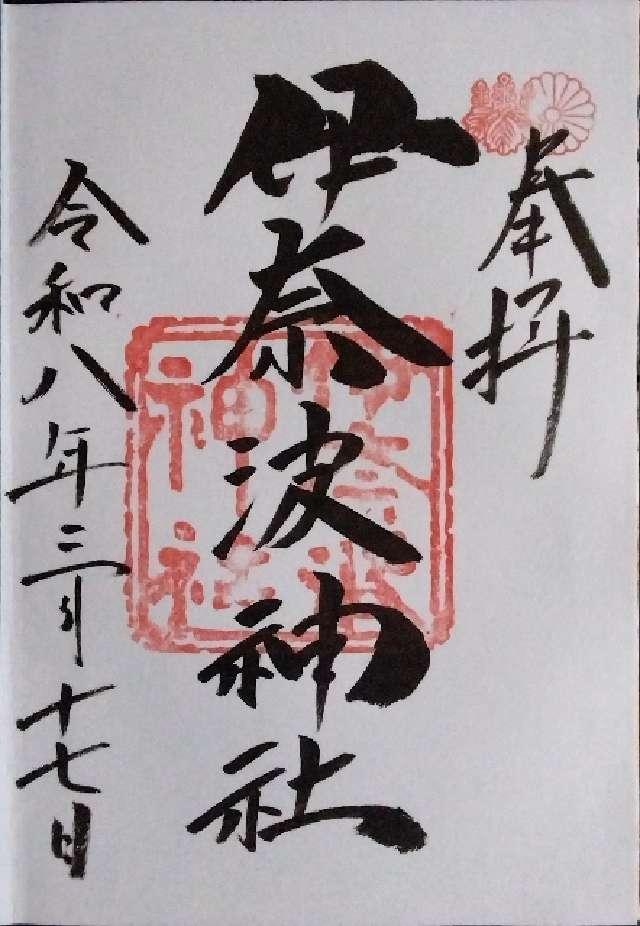 奉拝
伊奈波神社
伊奈波
神社
令和八年三月十七日